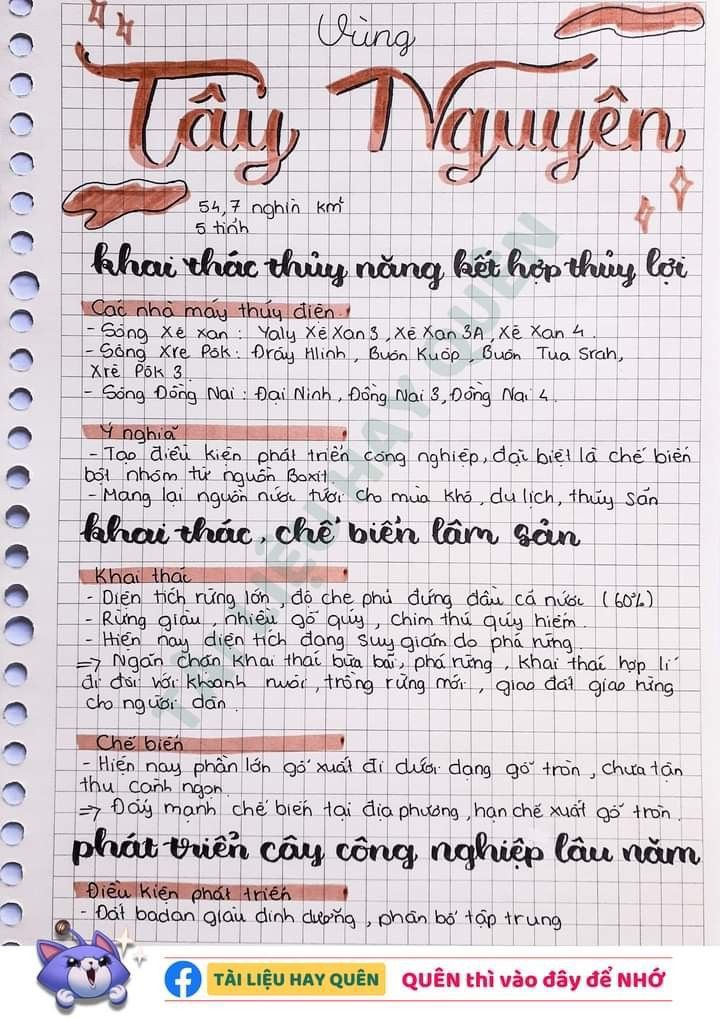 Vùng
Tây Nguyên
54,7 nghìn km²
5 tỉnh
khai thác thủy năng kết hợp thủy lợi
Các nhà máy thủy điện.
- Sông Xê xan: Yaly Xê Xan 3, Xê Xan 3A, Xê Xan 4.
- Sông Xrê Pôk: Đrây Hlinh, Buôn Kuôp, Buôn Tua Srah,
Xrê Pôk 3.
- Sông Đồng Nai: Đại Ninh, Đồng Nai 3, Đồng Nai 4.
Ý nghĩa
- Tạo điều kiện phát triển công nghiệp, đặc biệt là chế biến
bột nhôm từ nguồn Boxit.
- Mang lại nguồn nước tưới cho mùa khô, du lịch, thủy sản
khai thác, chế biến lâm sản
Khai thác
- Diện tích rừng lớn, độ che phủ đứng đầu cả nước (60%)
- Rừng giàu, nhiều gỗ quý, chim thú quý hiếm.
- Hiện nay diện tích đang suy giảm do phá rừng.
=> Ngăn chặn khai thác bừa bãi, phá rừng, khai thác hợp lí
đi đôi với khoanh nuôi, trồng rừng mới, giao đất giao rừng
cho người dân.
Chế biến
- Hiện nay phần lớn gỗ xuất đi dưới dạng gỗ tròn, chưa tận
thu cành ngọn.
=> Đẩy mạnh chế biến tại địa phương, hạn chế xuất gỗ tròn.
phát triển cây công nghiệp lâu năm
Điều kiện phát triển
- Đất badan giàu dinh dưỡng, phân bố tập trung
TÀI LIỆU HAY QUÊN
TÀI LIỆU HAY QUÊN
QUÊN thì vào đây để NHỚ